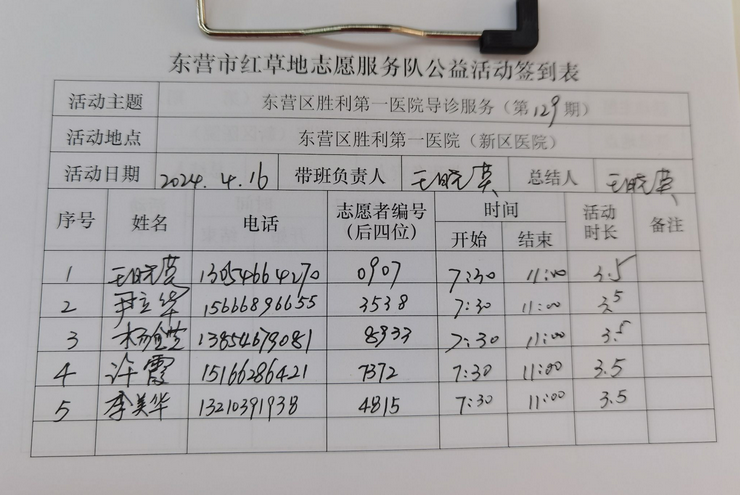 东营市红草地志愿服务队公益活动签到表
活动主题 东营区胜利第一医院导诊服务（第129期）
活动地点 东营区胜利第一医院（新区医院）
活动日期 2024.4.16 带班负责人 王晓英 总结人 王晓英
序号 姓名 电话 志愿者编号（后四位） 时间 开始 结束 活动时长 备注
1 王晓英 13054664270 0907 7:30 11:00 3.5
2 尹立华 15666896655 3538 7:30 11:00 3.5
3 13854679081 8933 7:30 11:00 3.5
4 许霞 15166286421 7372 7:30 11:00 3.5
5 李美华 13210391938 4815 7:30 11:00 3.5